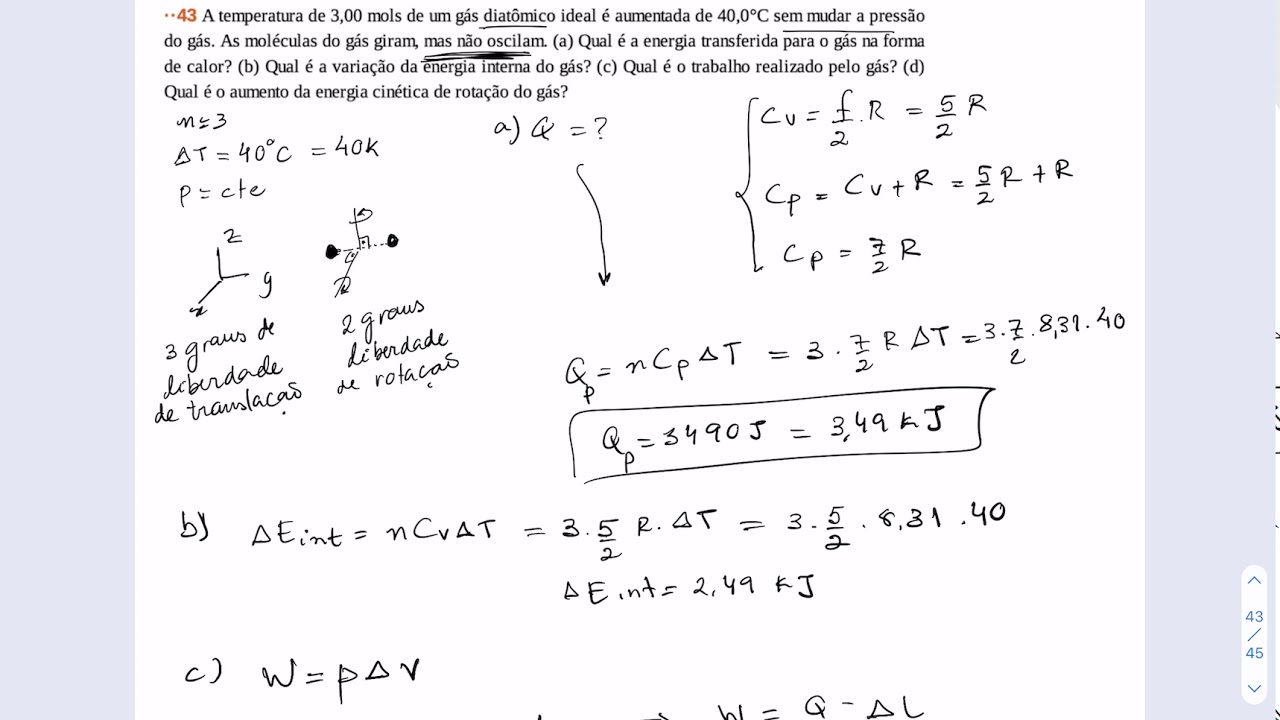 ··43 A temperatura de 3,00 mols de um gás diatômico ideal é aumentada de 40,0°C sem mudar a pressão
do gás. As moléculas do gás giram, mas não oscilam. (a) Qual é a energia transferida para o gás na forma
de calor? (b) Qual é a variação da energia interna do gás? (c) Qual é o trabalho realizado pelo gás? (d)
Qual é o aumento da energia cinética de rotação do gás?
n = 3
ΔT = 40°C = 40K
P = cte
a) Q = ?
Cv = f/2 . R = 5/2 R
Cp = Cv + R = 5/2 R + R
Cp = 7/2 R
z
y
x
3 graus de
liberdade
de translação
2 graus
liberdade
de rotação
Qp = n Cp ΔT = 3 . 7/2 R ΔT = 3 . 7/2 . 8,31 . 40
Qp = 3490 J = 3,49 kJ
b) ΔEint = n Cv ΔT = 3 . 5/2 R . ΔT = 3 . 5/2 . 8,31 . 40
ΔEint = 2,49 kJ
c) W = p Δ V
W = Q - Δ
43
/
45